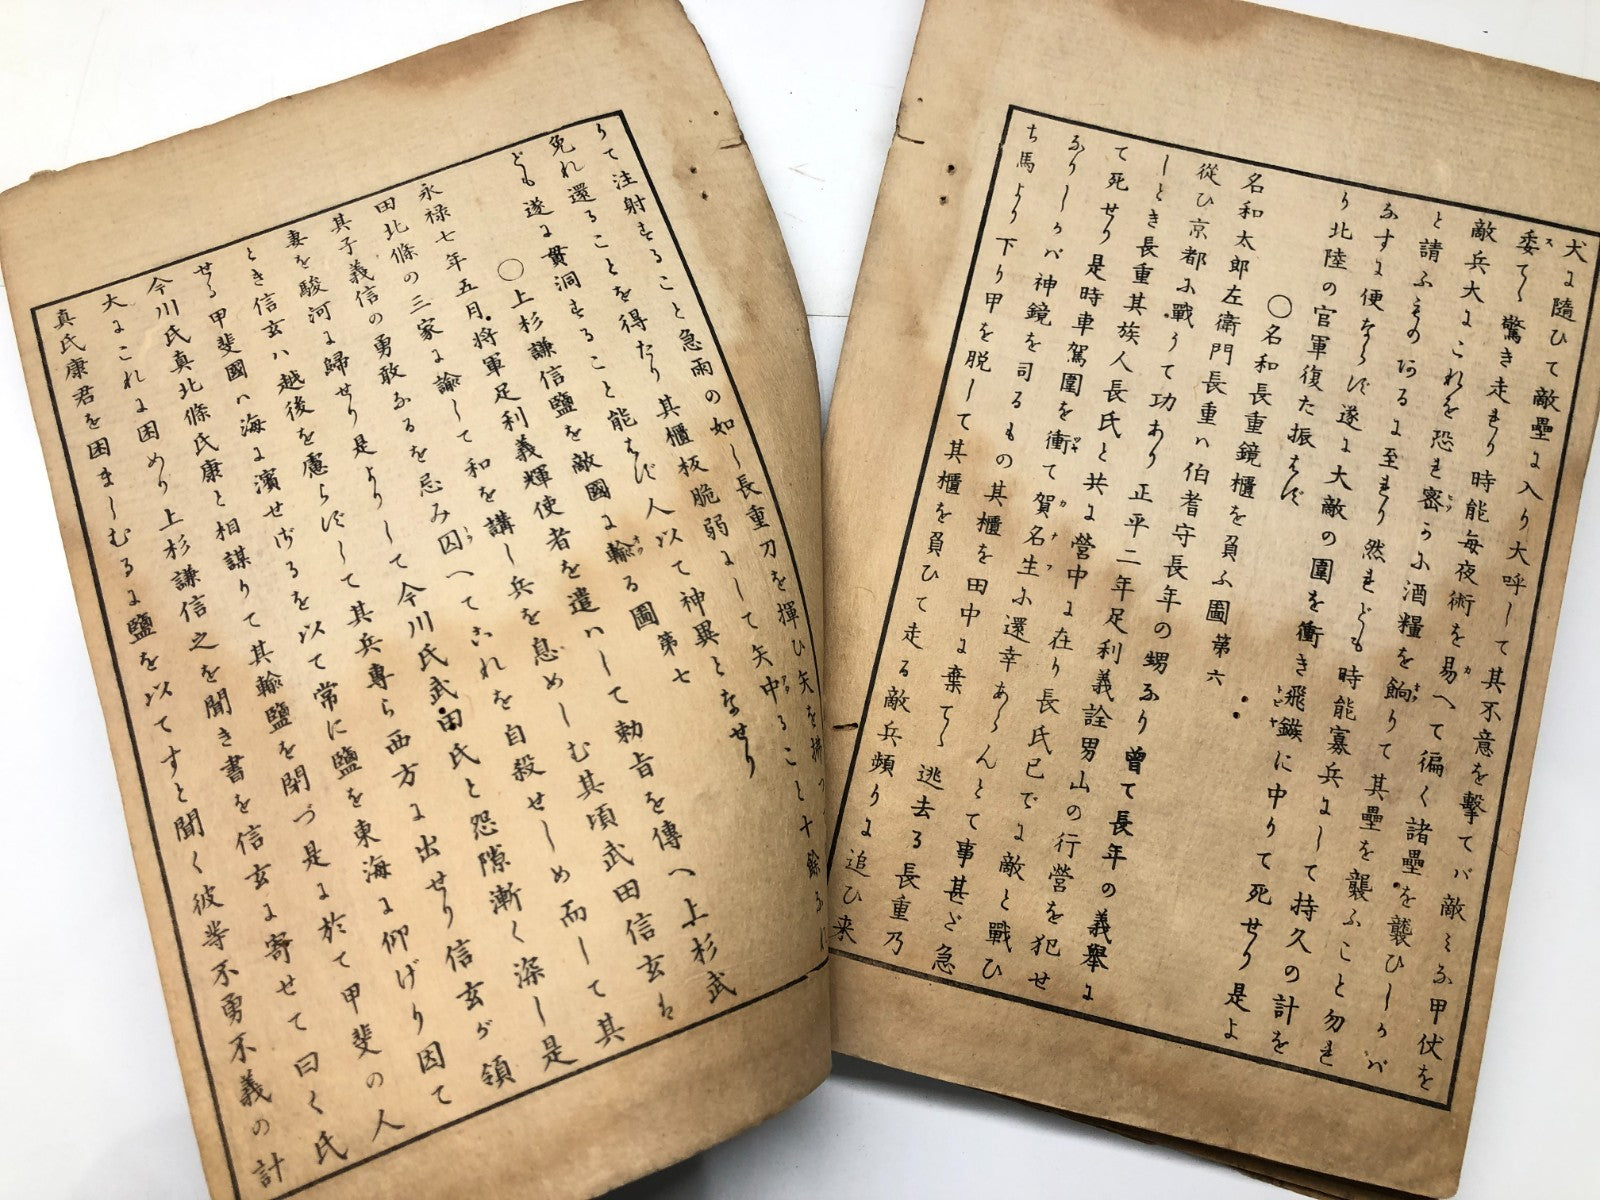 犬に隨ひて敵壘に入り大呼して其不意を擊てバ敵みな甲仗を
委てゝ驚き走れり時能每夜術を易へて徧く諸壘を襲ひしかバ
敵兵大にこれを恐れ密かに酒糧を餉りて其壘を襲ふこと勿れ
と請ふものあるに至れり然れども時能寡兵にして持久の計を
なすに便ならず遂に大敵の圍を衝き飛鏃に中りて死せり是よ
り北陸の官軍復た振はず
〇名和長重鏡櫃を負ふ圖第六
名和太郎左衞門長重ハ伯耆守長年の甥なり曾て長年の義擧に
從ひ京都に戰うて功あり正平二年足利義詮男山の行營を犯せ
しとき長重其族人長氏と共に營中に在り長氏已でに敵と戰ひ
て死せり是時車駕圍を衝て賀名生に還幸あらんとて事甚だ急
なりしかバ神鏡を司るもの其櫃を田中に棄てゝ逃去る長重乃
ち馬より下り甲を脱して其櫃を負ひて走る敵兵頻りに追ひ来
りて注射すること急雨の如し長重刀を揮ひ矢を拂 こと十餘
免れ還ることを得たり其櫃板脆弱にして矢中ること
ども遂に貫洞すること能はず人以て神異となせり
〇上杉謙信鹽を敵國に輸る圖第七
永禄七年五月將軍足利義輝使者を遣ハして勅旨を傳へ上杉武
田北條の三家に諭して和を講し兵を息めしむ其頃武田信玄は
其子義信の勇敢なるを忌み囚へてこれを自殺せしめ而して其
妻を駿河に歸せり是よりして今川氏武田氏と怨隙漸く深し是
とき信玄ハ越後を慮らずして其兵專ら西方に出せり信玄が領
せる甲斐國ハ海に濱せざるを以て常に鹽を東海に仰げり因て
今川氏真北條氏康と相謀りて其輸鹽を閉づ是に於て甲斐の人
大にこれに困めり上杉謙信之を聞き書を信玄に寄せて曰く氏
真氏康君を困ましむるに鹽を以てすと聞く彼等不勇不義の計